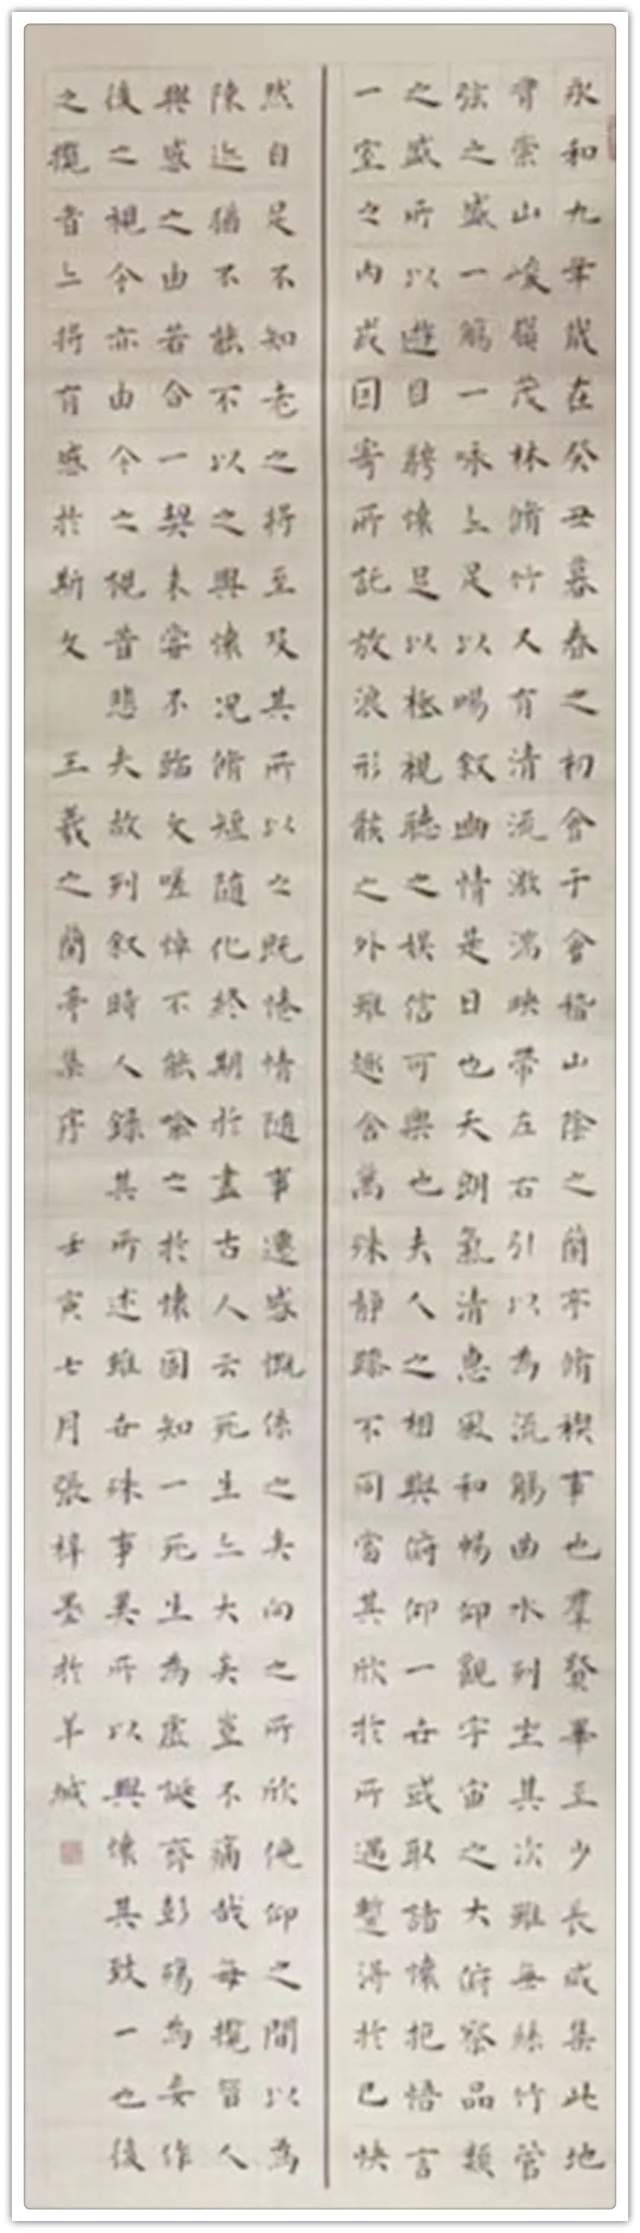 永和九年歲在癸丑暮春之初會于會稽山陰之蘭亭脩禊事也羣賢畢至少長咸集此地
有崇山峻嶺茂林脩竹又有清流激湍映帶左右引以為流觴曲水列坐其次雖無絲竹管
弦之盛一觴一咏亦足以暢叙幽情是日也天朗氣清惠風和暢仰觀宇宙之大俯察品類
之盛所以遊目騁懷足以極視聽之娛信可樂也夫人之相與俯仰一世或取諸懷抱悟言
一室之內或因寄所託放浪形骸之外雖趣舍萬殊靜躁不同當其欣於所遇蹔得於己快
然自足不知老之將至及其所以之既惓情隨事遷感慨係之矣向之所欣俛仰之間以為
陳迹猶不能不以之興懷況脩短隨化終期於盡古人云死生亦大矣豈不痛哉每攬昔人
興感之由若合一契未嘗不臨文嗟悼不能喻之於懷固知一死生為虛誕齊彭殤為妄作
後之視今亦由今之視昔悲夫故列叙時人錄其所述雖世殊事異所以興懷其致一也後
之攬者亦將有感於斯文 王羲之蘭亭集序 壬寅七月張梓墨於羊城